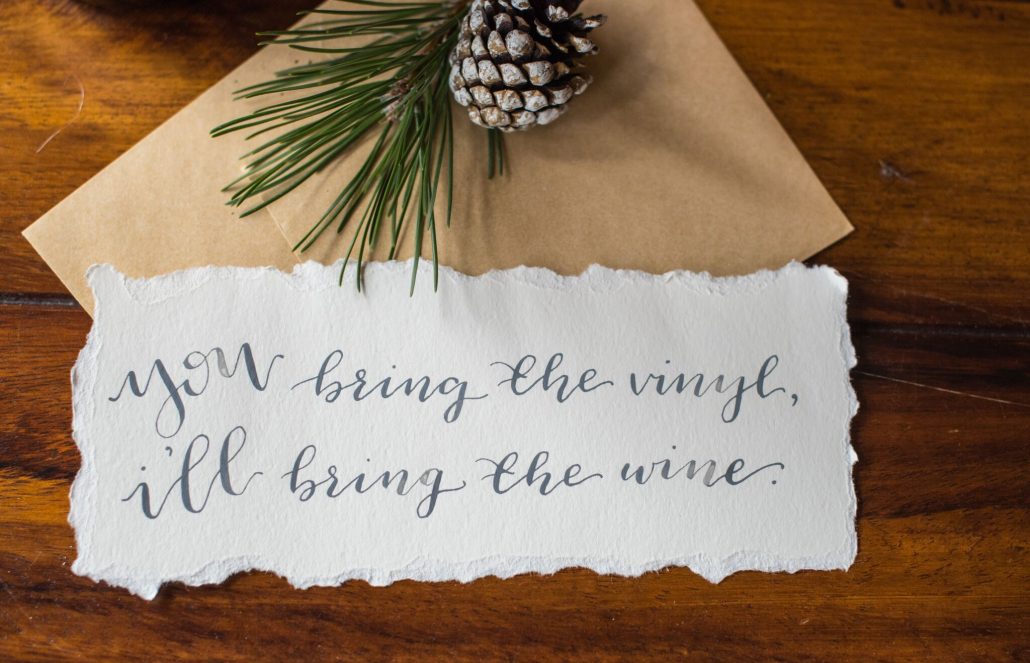 you bring the vinyl,
i'll bring the wine.